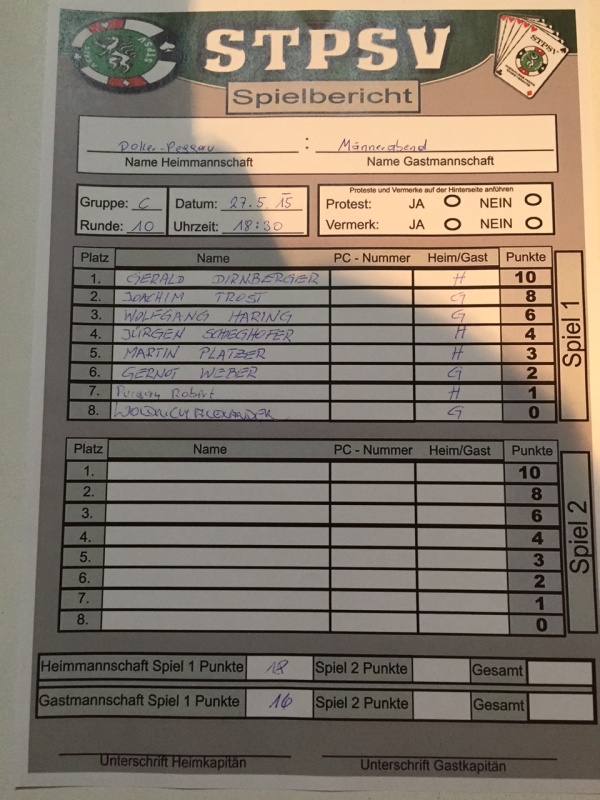 STPSV
STPSV
Spielbericht
: Männerabend
Name Heimmannschaft Name Gastmannschaft
Gruppe: C Datum: 27.5.15
Runde: 10 Uhrzeit: 18:30
Proteste und Vermerke auf der Hinterseite anführen
Protest: JA NEIN
Vermerk: JA NEIN
Platz Name PC - Nummer Heim/Gast Punkte
1. GERALD DIRNBERGER H 10
2. JOACHIM TROST G 8
3. WOLFGANG HARING G 6
4. JÜRGEN H 4
5. MARTIN PLATZER H 3
6. GERNOT WEBER G 2
7. Robert H 1
8. G 0
Spiel 1
Platz Name PC - Nummer Heim/Gast Punkte
1. 10
2. 8
3. 6
4. 4
5. 3
6. 2
7. 1
8. 0
Spiel 2
Heimmannschaft Spiel 1 Punkte 18 Spiel 2 Punkte Gesamt
Gastmannschaft Spiel 1 Punkte 16 Spiel 2 Punkte Gesamt
Unterschrift Heimkapitän Unterschrift Gastkapitän